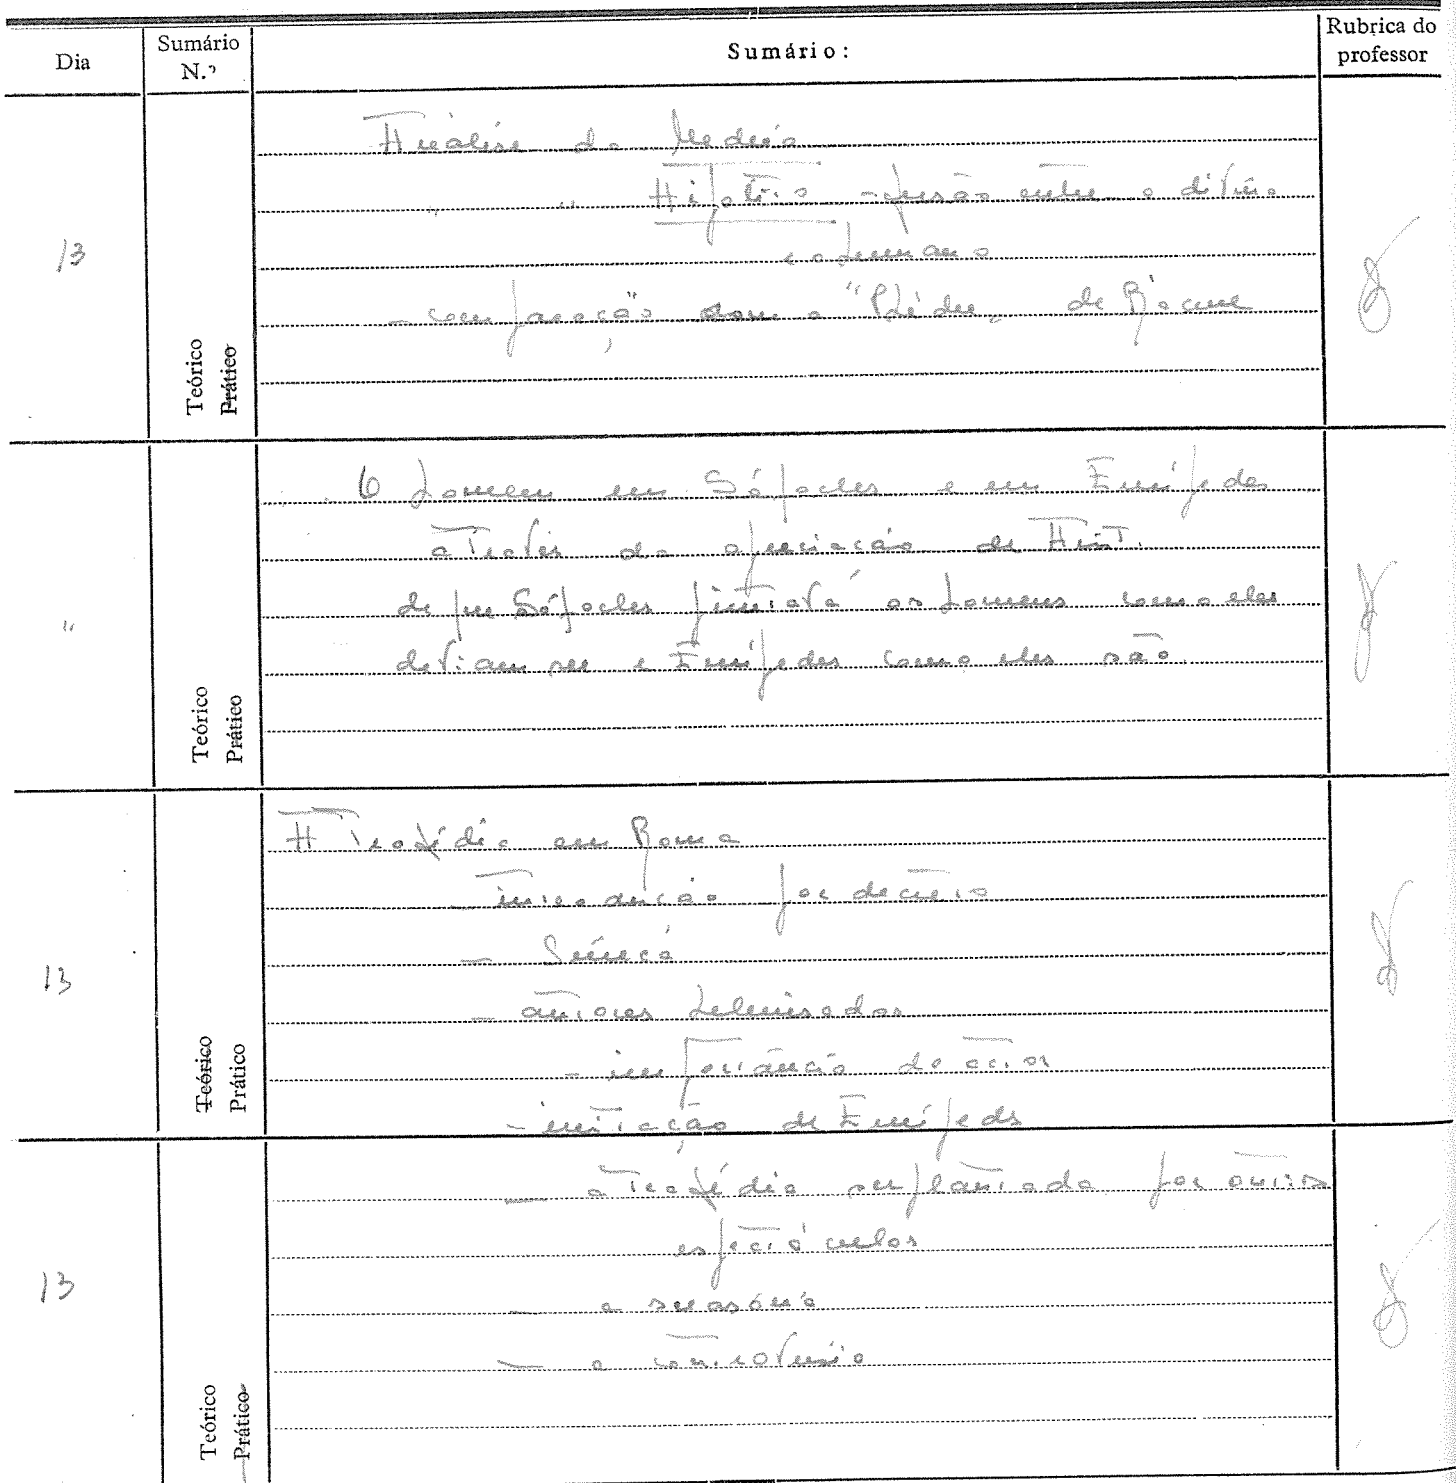 Dia
Sumário N.º
Sumário:
Rubrica do professor
13
Teórico
Prático
Análise da Medeia
" " Hipólito - fusão entre o divino
e o humano
- comparação com a "Phèdre" de Racine
"
Teórico
Prático
O homem em Sófocles e em Eurípedes
através da apreciação de Arist.
de que Sófocles pintava os homens como eles
deviam ser e Eurípedes como eles são.
13
Teórico
Prático
A Tragédia em Roma
- introdução por decreto
- Séneca
- autores helenizados
- importância do actor
- imitação de Eurípeds
13
Teórico
Prático
- a tragédia suplantada por outros
espectáculos
- a suasória
- a controvérsia